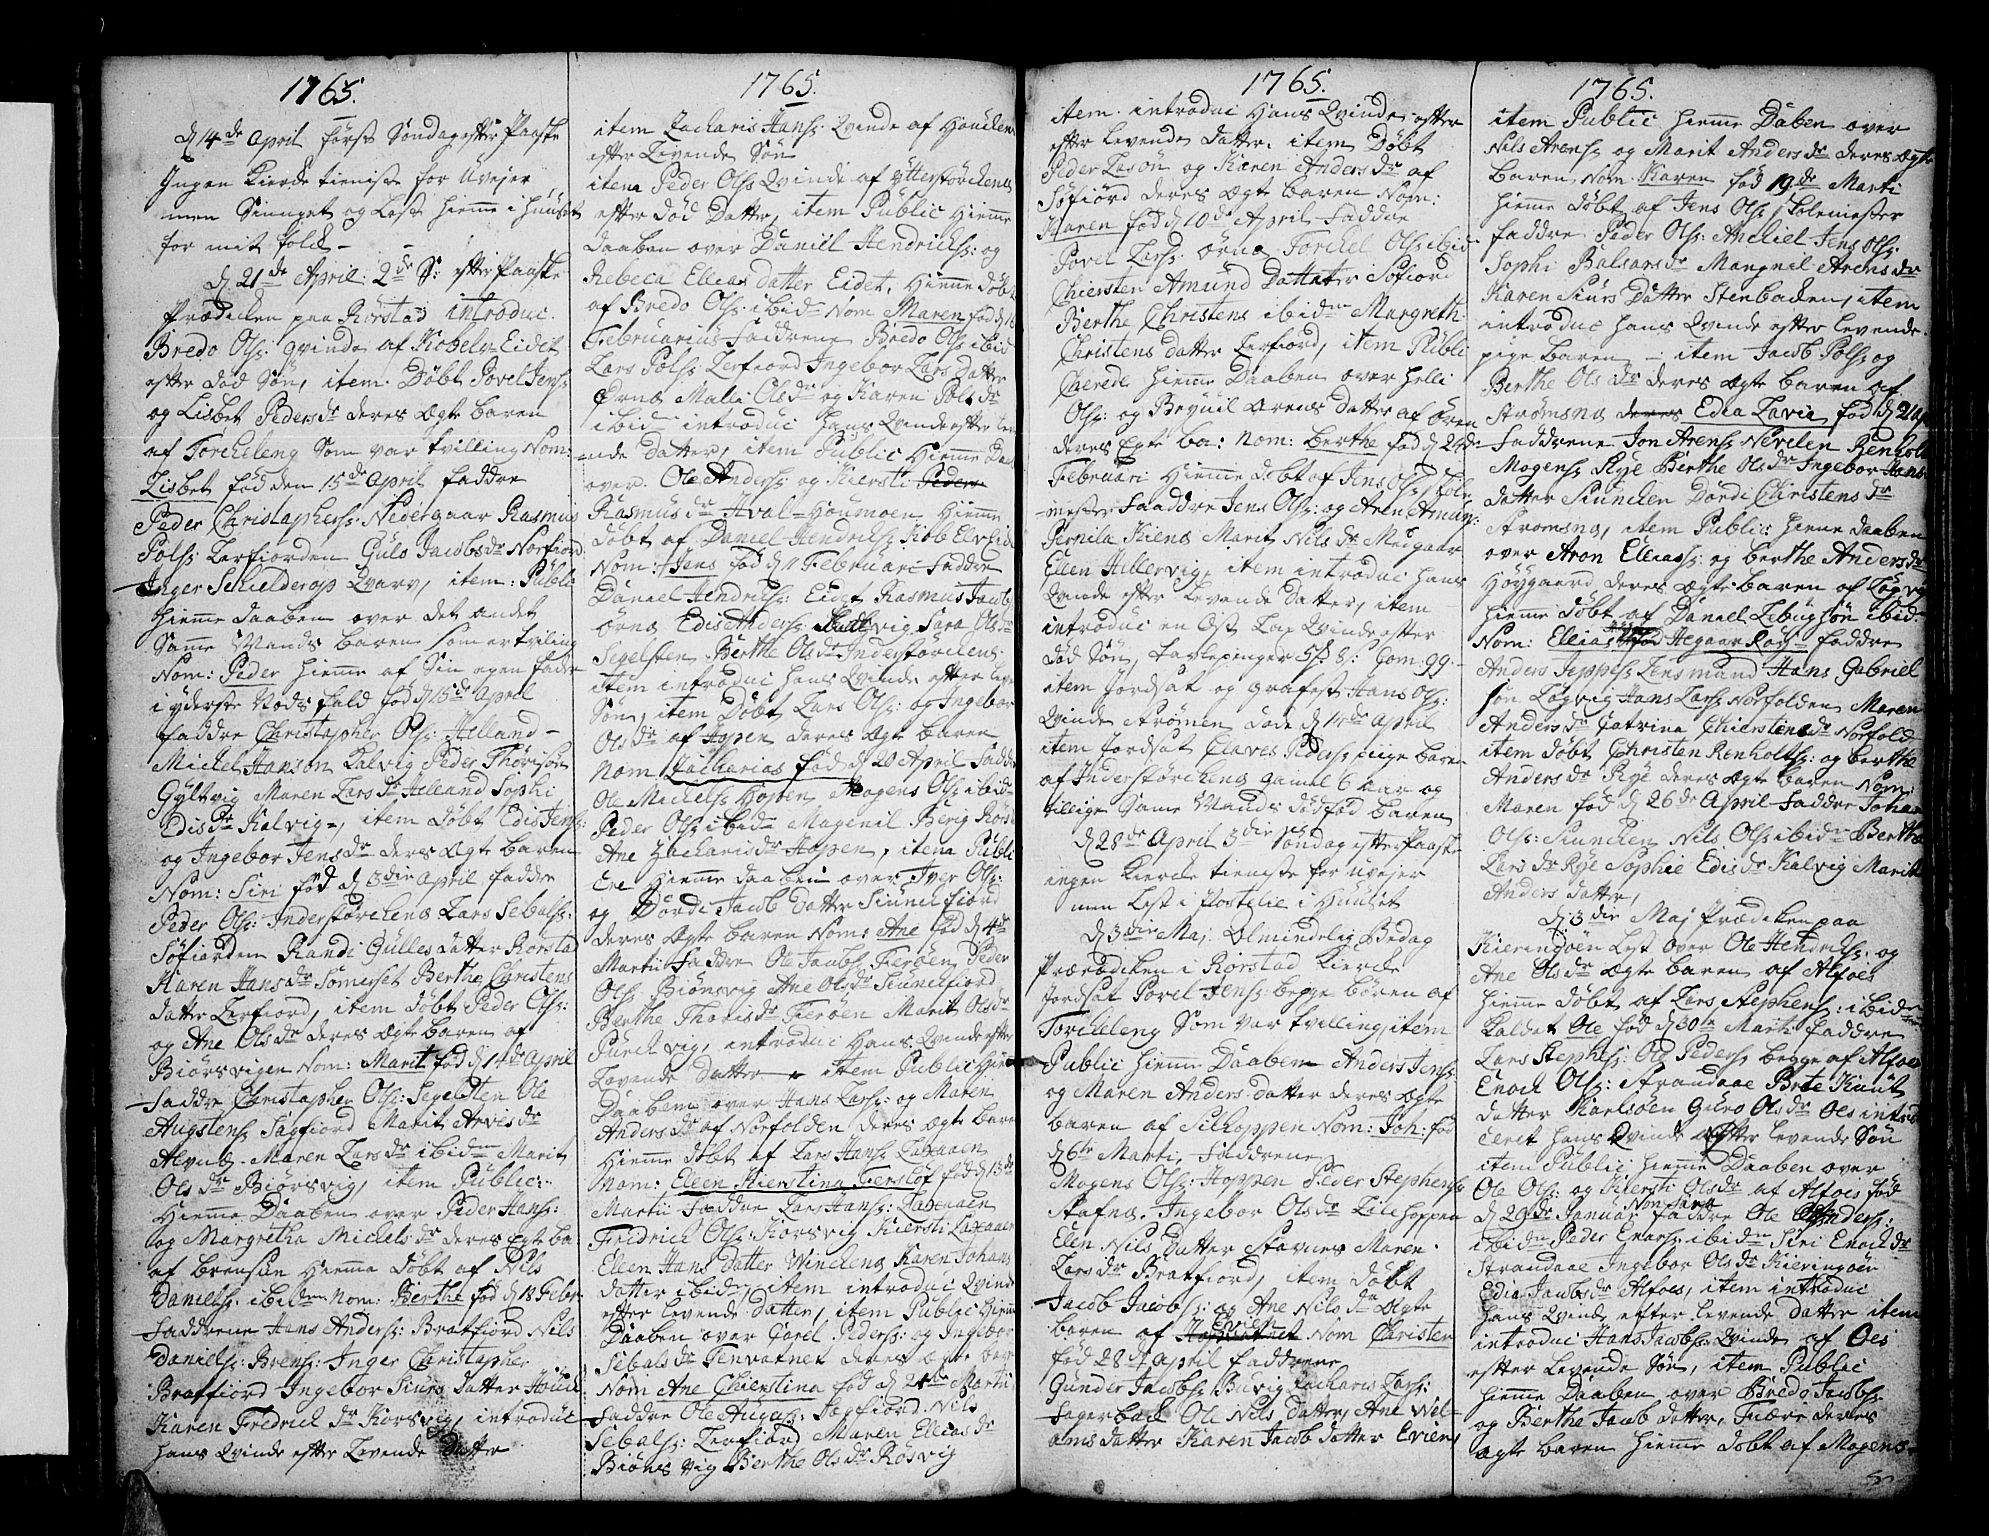 1765.
d 14de April første Søndag efter Paaske
Ingen Kierde tieniste for Uvejer
men Siunget og Lest hieme i huuset
for mit folck -
d 21de April: 2de S: efter Paaske
Prædicken paa Rørstad introduc.
Bredo Ols: qvinde af Kobelv-Eidet
efter død Søn, item. Døbt Povel Jens:
og Lisbet Pedersdr deres Ægte baren
af Torckeleng Som var tvilling Nom:
Lisbet fød den 15de April faddre
Peder Christaphers: Nedergaar Rasmus
Pols: Lerfiorden Guls Jacobsdr Norfiord
Inger Schielderup Qvarv, item: Publi:
hieme daaben over det andet
Samme Mands baren som er tviling
Nom: Peder hieme af Sin egen fader
i yderste Nøds fald fød d 15de April
faddre Christapher Ols: Helland -
Michel Hanson Kalvig Peder Thorisøn
Gyltvig Maren Larsdr Helland Sophi
Edisdr Kalvig, item Døbt Edis Jens:
og Ingebor Jensdr deres Ægte baren
Nom: Siri fød d 3die April faddre
Peder Ols: Inderstørckens Lars Sebals:
Søfiorden Randi Gulles datter Rorstad
Karen Hansdr Somerset Berthe Christens
datter Lerfiord, item døbt Peder Ols:
og Ane Olsdr deres Ægte baren af
Biørsvigen Nom: Marit fød d 14de April
faddre Christapher Ols: Segelsten Ole
Augstens: Sagfiord Marit Arvisdr
Alvnb. Maren Larsdr ibidm Marit
Olsdr Biørsvig, item Public:
Hieme Daaben over Peder Hans:
og Margretha Michelsdr deres Egte ba
af brensun Hieme Døbt af Nils
Daniels: ibidm Nom: Berthe fød d 18 Febr
faddrene Hans Anders: Bratfiord Nils
Daniels: Brens: Inger Christapher
Bratfiord Ingebor Siurs datter
Karen Fredrich dr Korsvig, introduc
hans Qvinde efter Levende datter
1765.
item Zacharis Hans: Qvinde af
efter Levende Søn
item Peder Ols: Qvinde af Ytterstørckens
efter død Datter, item Public Hieme
daaben over Daniel Hendricks: og
Rebeca Ellias datter Eidet, Hieme døbt
af Bredo Ols: ibidm Nom Maren fød d 16
Februarius Faddrene Bredo Ols: ibid
Lars Pols: Lerfiord Ingebor Lars datter
Ørnes Malli Olsdr og Karen Polsdr
ibid introduc hans Qvinde efter lev
-nde datter, item Public Hieme Daa
over. Ole Anders: og Kiersti Peders
Rasmusdr Aval-Houmoen Hieme
døbt af Daniel Hendricks: Kob Elv Eid
Nom: Jens fød d 11 Februari Faddre
Daniel Hendrics: Eidet Rasmus Jacob
Ørnes Edis Anders: vig Sara Olsdr
Segelsten Berthe Olsdr Inderstørckens
item introduc hans Qvinde efter leve
Søn, item Døbt Lars Ols: og Ingebor
Olsdr af Hopen deres Ægte baren
Nom Zacharias fød d 20 April Faddre
Ole Michels: Hopen Mogens Ols: ibid
Peder Ols: ibidm Magenil Berig
Ane Zacharisdr Hopen, item Publi
Ere Hieme daaben over Iver Ols:
og Dordi Jacob datter Siunckfiord
deres Ægte baren Nom: Ane fød d 4de
Martii Faddre Ole Jacobs: Fierøen Peder
Ols: Biønsvig Ane Olsdr Siunckfiord
Berthe Thorisdr Fierøen Marit Olsdr
vig, introduc Hans Qvinde efter
Levende datter, item Public Hieme
Daaben over Hans Lars: og Maren
Andersdr af Norfolden deres Ægte bare
Hieme Døbt af Lars Hans: Laxaaen
Nom: Eleen Kierstina fød d 13de
Martii Faddre Lars Hans: Laxaaen
Fredrich Ols: Korsvig Kiersti Laxaaen
Eleen Hans datter Winckens Karen Johans
datter ibidm, item introduc Qvinde
efter Levende datter, item Public Hieme
Daaben over Carel Peders: og Ingebor
Sebalsdr Tenvatnet deres Ægte bar
Nom Ane Chierstina fød d 24de Martii
Faddre Ole Augus: Sagfiord Nils
Sebals: Lerfiord Maren Elliasdr
Biønsvig Berthe Olsdr Rosvig
1765.
item. introduc Hans Qvinde efter
efter Levende datter. item Døbt
Peder Lasøn og Karen Andersdr af
Søfiord deres Ægte baren Nom:
Maren fød d 10de April Faddre
Povel Lars: Ørna Torckel Ols: ibid
Chiersten Amund Dattter Sofiord
Berthe Christens ibidm Margreth
Christens datter Lerfiord, item Publi
Cherede Hieme Daaben over Helli
Ols: og Beyuil Arens datter af Øren
deres Egte ba: Nom: Berthe fød d 24de
Februari Hieme døbt af Jens Ols: Skole
mester Faaddre Jens Ols: og Aren Amun:
Pernila Kiens Marit Nilsdr Medgaar
Eleen Hellervig, item introduc hans
Qvinde efter Levende datter, item
introduc en Øst Lap Qvinde efter
død Søn, Tavlepenger 5 ß 8: Com. 99.
item Jordsat og grafest Hans Ols:
Qvinde Strømen døde d 14de April
item Jordsat Claves Peders: piige baren
af Inderstørckens gamel 6 aar og
tillige Same Mands dødfød baren
d 28de April 3die Søndag efter Paaske
ingen Kierde tieniste for uvejer
men Lest i Postelie i Huuset
d 3die Maj Almindelig Bedag
Prærædicken i Rorstad Kierde
Jordsat Povel Jens: begge børen af
Torckeleng Som Var tvilling, item
Public hieme Daaben Anders Jens:
og Maren Anders: datter deres Ægte
baren af Silhoppen Nom: Joh: fød
d 6te Marti, Faddrene
Mogens Ols: Hoppen Peder Stephens:
Stafnes. Ingebor Olsdr Lillehoppen
Elen Nils datter Stavnes Maren
Larsdr Bratfiord, item døbt
Jacob Jacobs: og Ane Nilsdr Ægte
baren af Evien Nom Christen
fød 28de April faddrene
Gunder Jacobs: Buvig Zacharis Lars:
Fagerbach Ole Nils datter, Ane Wel-
oms datter Karen Jacob datter Eviens
1765.
item Public hieme Daben over
Nils Arens: og Marit Andersdr deres Ægte
Baren Nom. Karen fød 19de Marti
hieme Døbt af Jens Ols: Skolemester
faddre Peder Ols: Anchiel Jens Ols:
Sophi Balsarsdr Mangnil Arensdr
Karen Siurs Datter Stenbacken, item
introduc hans Qvinde efter Levende
pige baren - item Jacob Pols: og
Berthe Olsdr deres Ægte baren af
Strømsnes deres Edea Lavie fød d 21 Ap
faddrene Jon Arens: Nevelen Renholt
Mogens: Rye Berthe Olsdr Ingebor Hans
datter Siuncken Dordi Christensdr
Stromsnes, item Public: hieme daaben
over Aron Ellias: og berthe Andersdr
Høygaard deres Ægte baren af Løgvig
hieme Døbt af Daniel Zebugsøn ibidm
Nom: Ellias Hegaar Rav faddre
Anders Jeppes: Lensmand Hans Gabriel
søn Løgvig Hans Lars: Norfolden Maren
Andersdr Catrina Chierstinadr Norfold
item døbt Christen Renholts: og berthe
Andersdr Rye deres Ægte baren Nom:
Maren fød d 26de April Faddre Johan
Ols: Siuncken Nils Ols: ibidm Berthe
Larsdr Rye Sophie Edisdr Kalvig Marit
Anders datter,
d: 3die Maj Prædicken paa
Kieringøen Lyst over Ole Hendricks: og
Ane Olsdr Ægte baren af Alfoes
hieme Døbt af Lars Stephens: ibidm
Kaldet Ole fød d 30te Marti faddre
Lars Stephens: Ole Peders: begge af Alfoes
Enoch Ols: Strandaae Brte Knut
datter Karlsøen Guro Olsdr Oes introd
Ceret hans Qvinde efter Levende Søn
item Public hieme Daaben over
Ole Ols: og Kiersti Olsdr af Alfoes fød
d 29de Januar Nom Sara faddre Ole Anders:
ibidm Peder Enars: ibidm Siri Enochdr
Strandaae Ingebor Olsdr Kieringøen
Edia Jacobsdr Alfoes, item introduc
hans Qvinde efter Levende datter item
introduc Hans Jacobs: Qvinde af Oes
efter Levende Søn, item Public
hieme Daaben over Bredo Jacobs:
og Berthe Jacob datter, Fiære deres
Ægte baren hieme døbt af Mogens